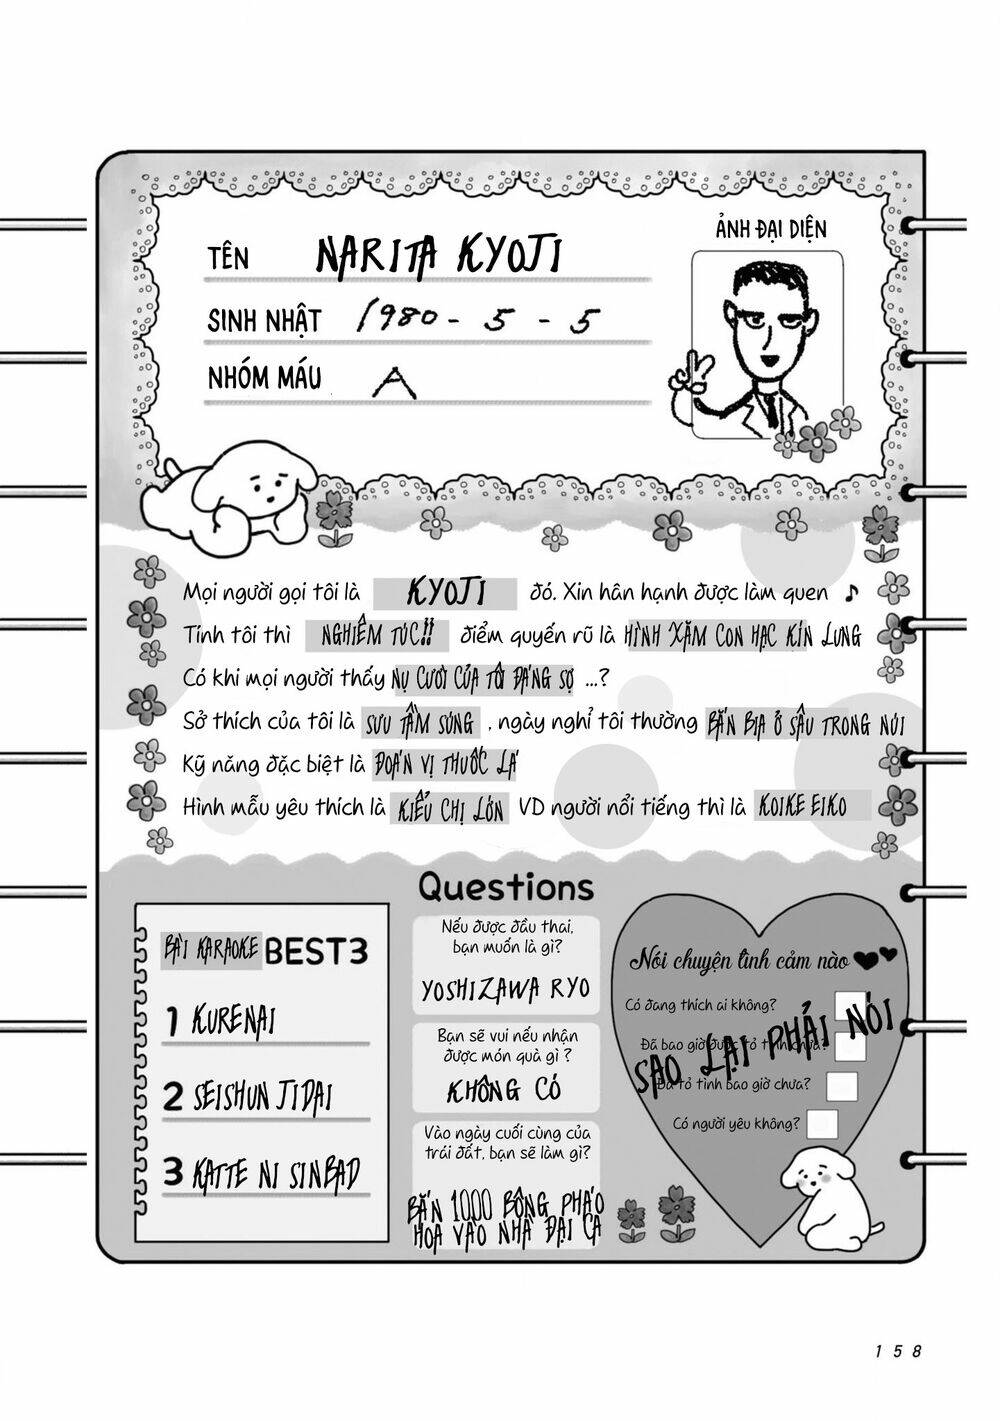 ẢNH ĐẠI DIỆN
TÊN NARITA KYOJI
SINH NHẬT 1980 - 5 - 5
NHÓM MÁU A
Mọi người gọi tôi là KYOJI đó. Xin hân hạnh được làm quen ♪
Tính tôi thì NGHIÊM TÚC!! điểm quyến rũ là HÌNH XĂM CON HẠC KÍN LƯNG
Có khi mọi người thấy NỤ CƯỜI CỦA TÔI ĐÁNG SỢ ...?
Sở thích của tôi là SƯU TẦM SÚNG , ngày nghỉ tôi thường BẮN BIA Ở SÂU TRONG NÚI
Kỹ năng đặc biệt là ĐOÁN VỊ THUỐC LÁ
Hình mẫu yêu thích là KIỂU CHỊ LỚN VD người nổi tiếng thì là KOIKE EIKO
Questions
BÀI KARAOKE BEST3
1 KURENAI
2 SEISHUN JIDAI
3 KATTE NI SINBAD
Nếu được đầu thai,
bạn muốn là gì?
YOSHIZAWA RYO
Bạn sẽ vui nếu nhận
được món quà gì ?
KHÔNG CÓ
Vào ngày cuối cùng của
trái đất, bạn sẽ làm gì?
BẮN 1000 BÔNG PHÁO
HOA VÀO NHÀ ĐẠI CA
Nói chuyện tình cảm nào
Có đang thích ai không?
Đã bao giờ được tỏ tình chưa?
SAO LẠI PHẢI NÓI
Đã tỏ tình bao giờ chưa?
Có người yêu không?
158